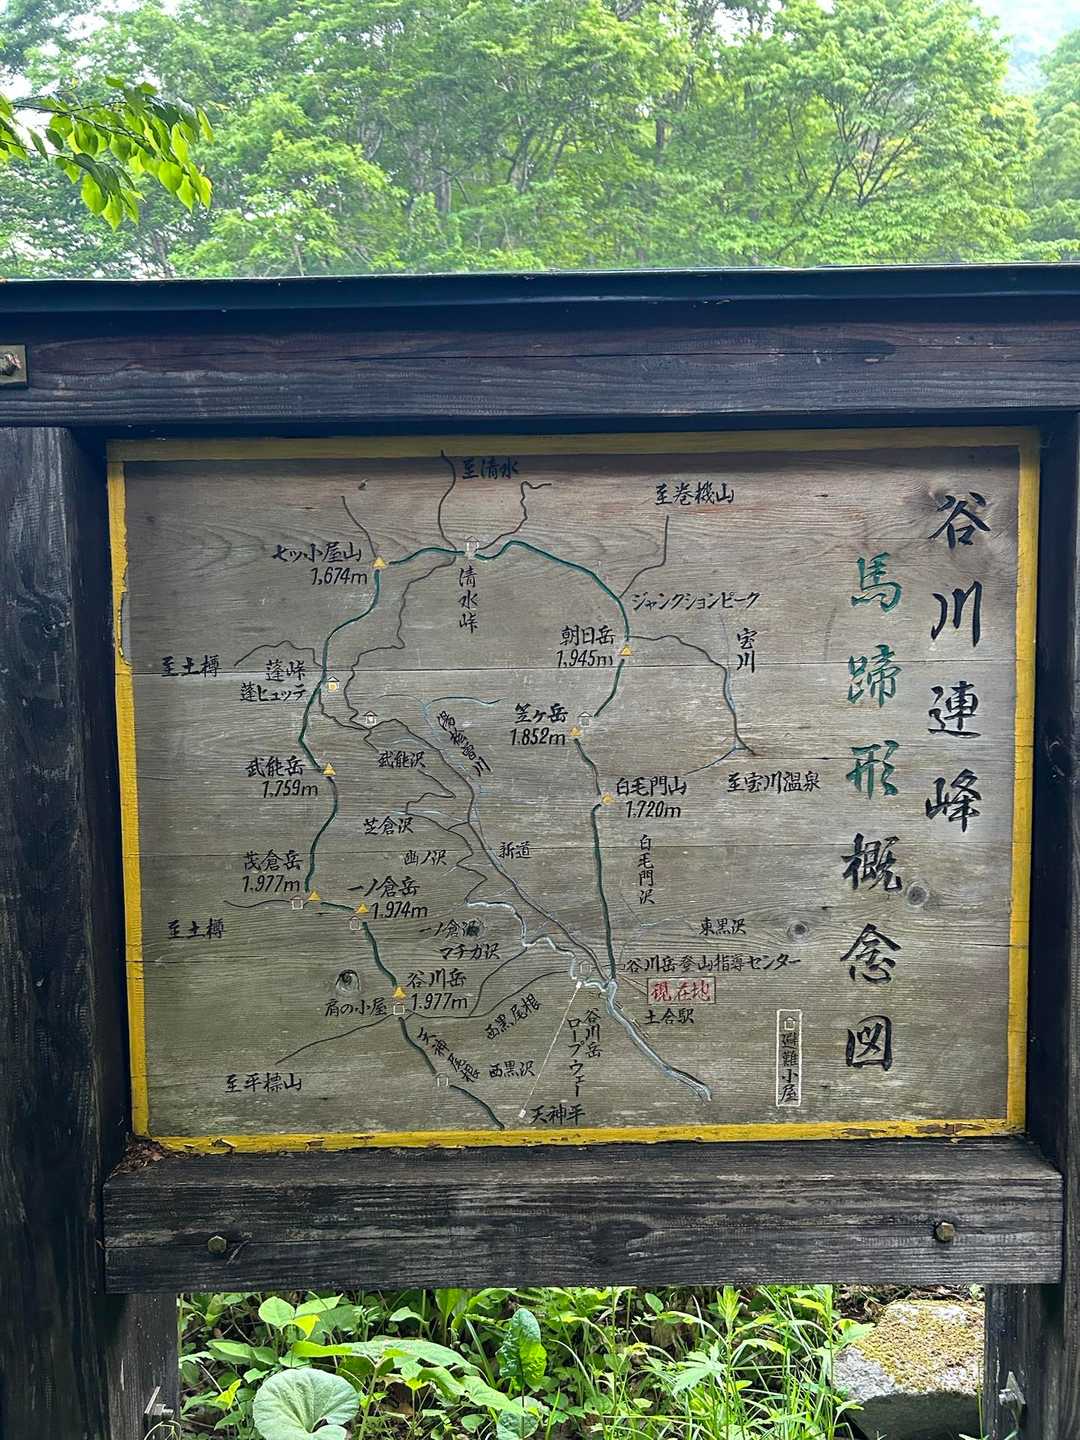 谷川連峰
馬蹄形概念図
至清水
至巻機山
七ッ小屋山
1,674m
清水峠
ジャンクションピーク
朝日岳
1,945m
宝川
至土樽
蓬峠
蓬ヒュッテ
笠ヶ岳
1.852m
湯桧曽川
武能沢
武能岳
1,759m
至宝川温泉
白毛門山
1,720m
芝倉沢
新道
幽ノ沢
白毛門沢
茂倉岳
1.977m
一ノ倉岳
1.974m
至土樽
一ノ倉沢
マチガ沢
東黒沢
谷川岳登山指導センター
現在地
土合駅
谷川岳
1.977m
肩の小屋
西黒尾根
谷川岳
ロープウェー
天神尾根
西黒沢
至平標山
天神平
避難小屋